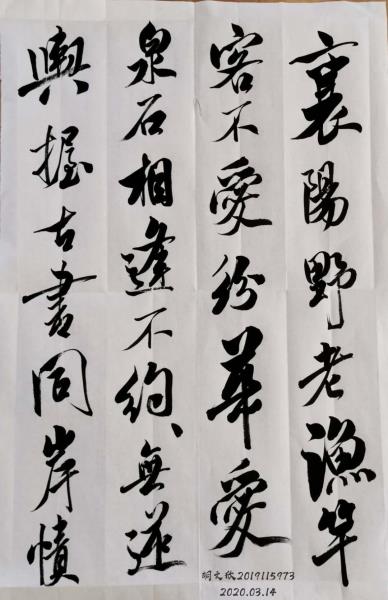 襄陽野老漁竿
客不愛紛華愛
泉石相逢不約無逆
輿握古書同岸幘
胡文欣2019115973
2020.03.14